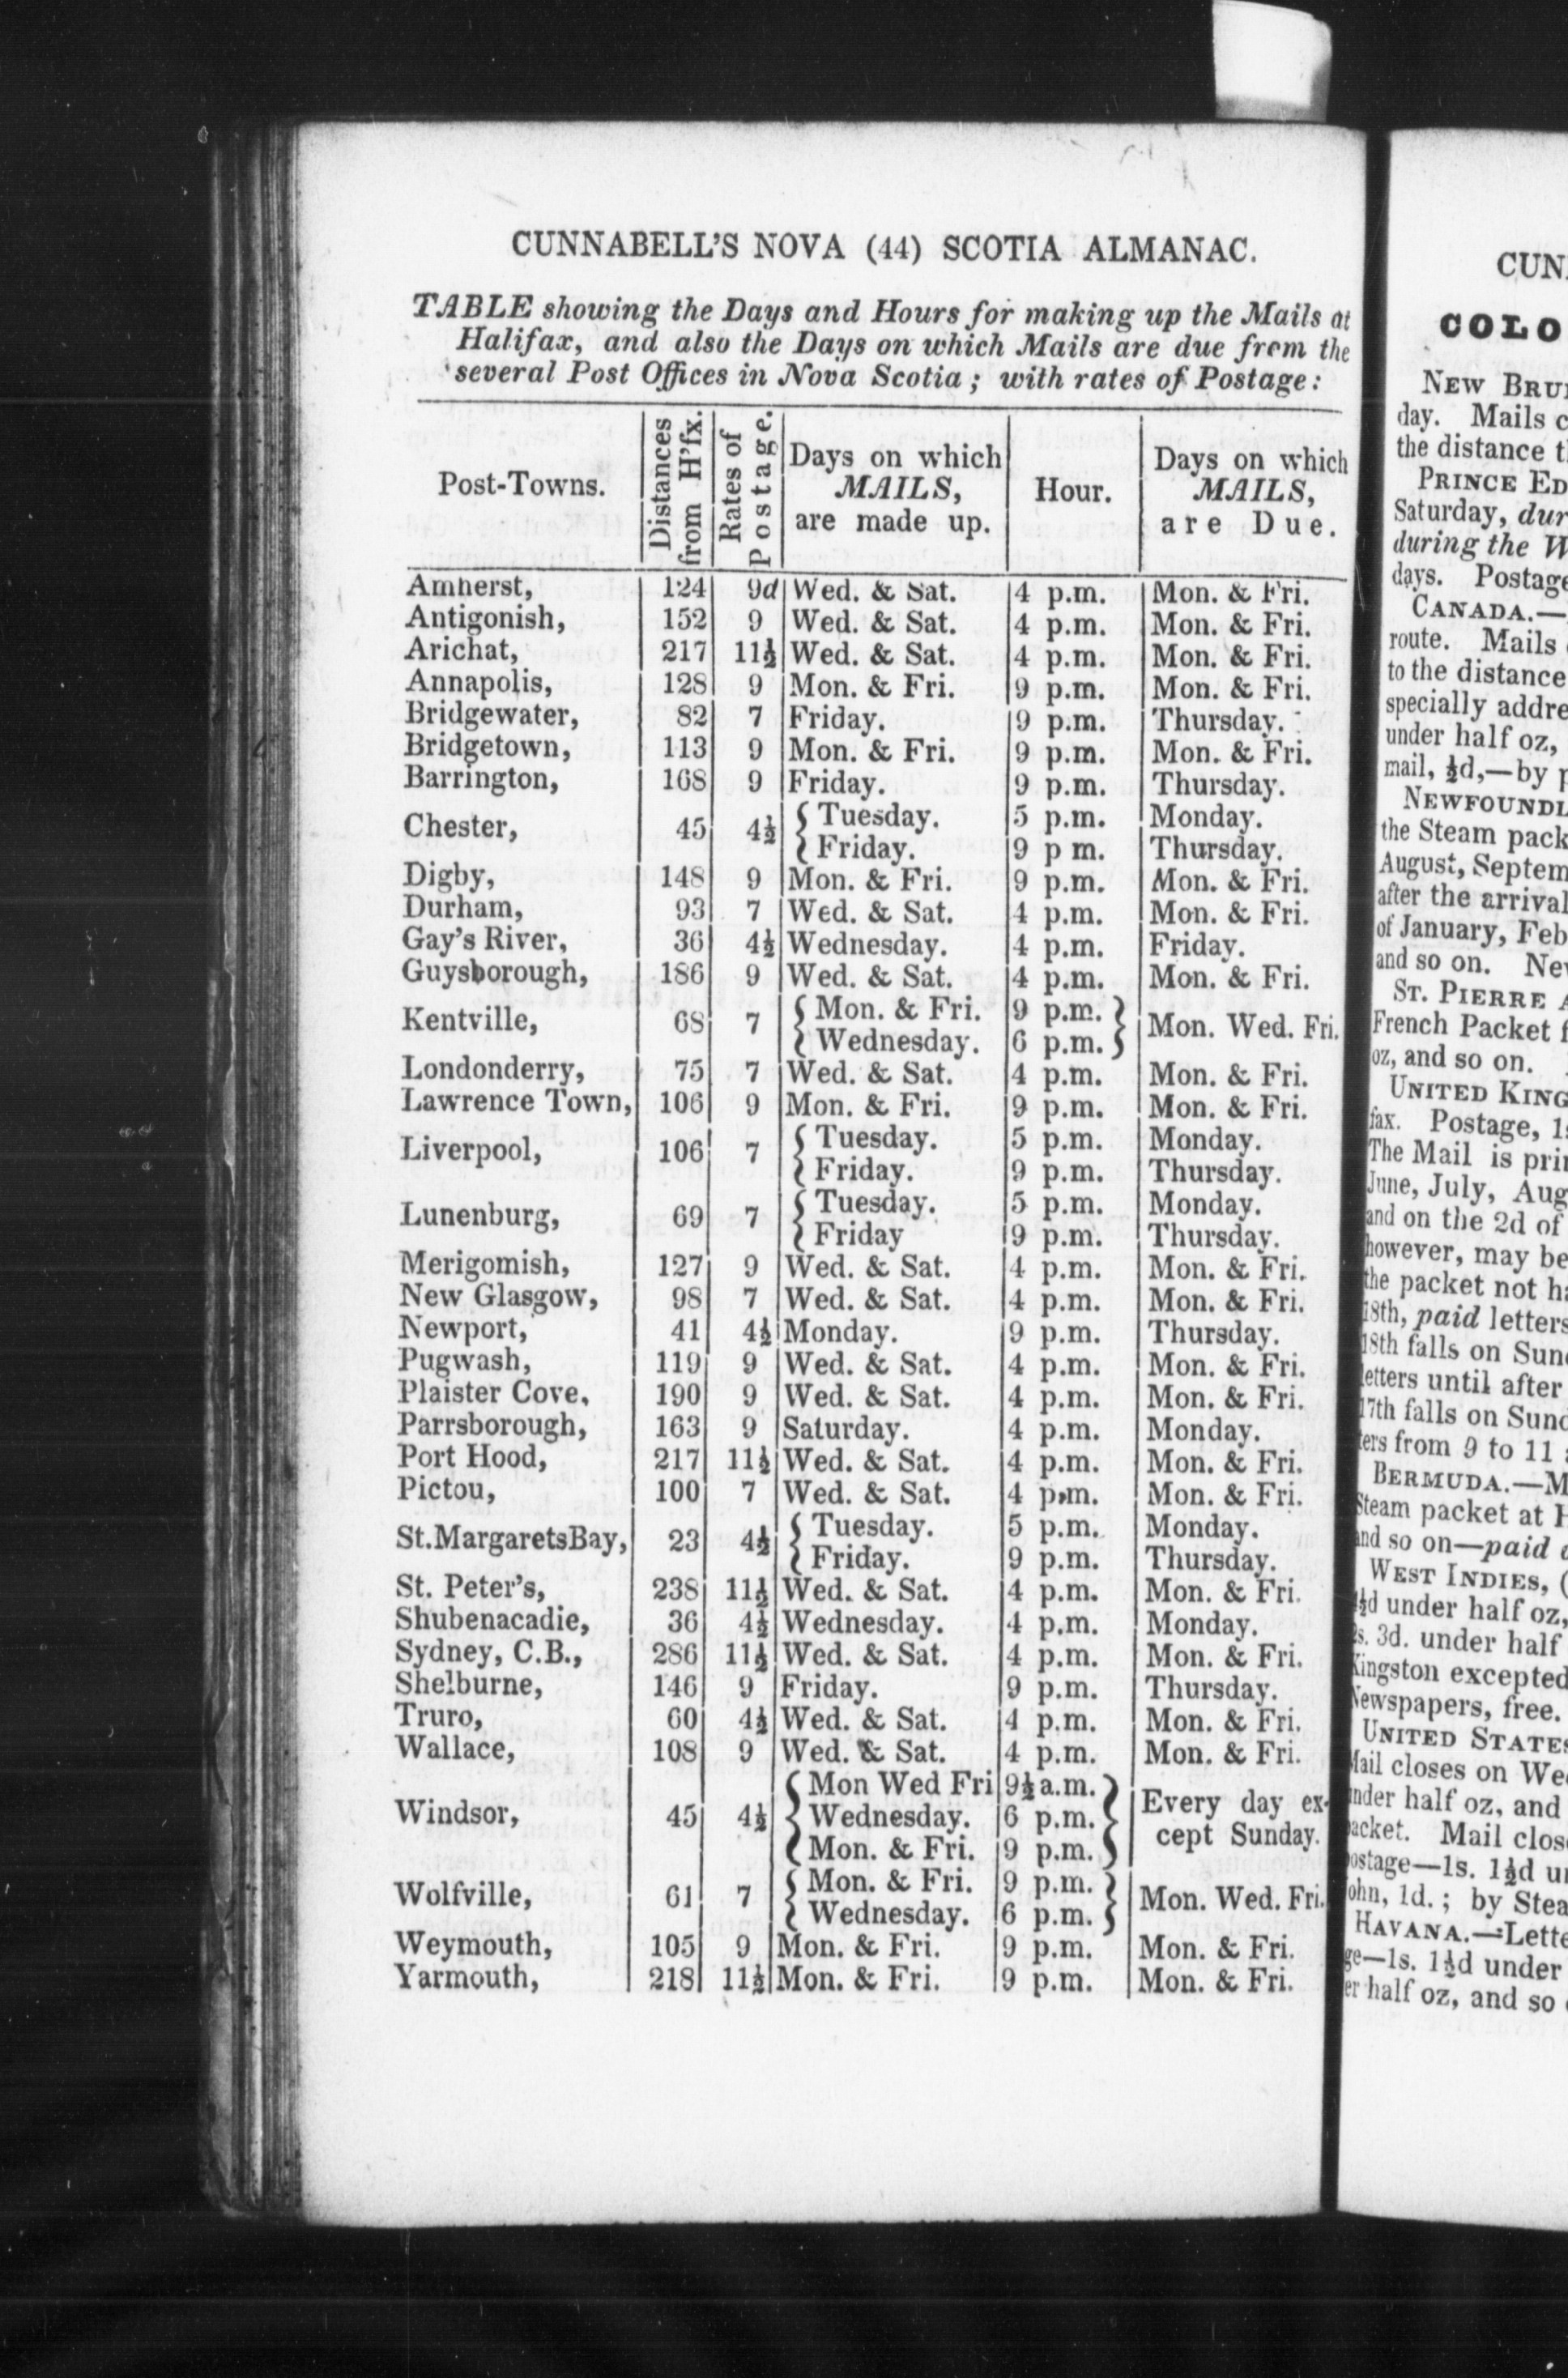 CUNNABELL'S NOVA (44) SCOTIA ALMANAC.
TABLE showing the Days and Hours for making up the Mails at
Halifax, and also the Days on which Mails are due from the
several Post Offices in Nova Scotia; with rates of Postage:
Post-Towns. Distances from H'fx. Rates of Postage. Days on which MAILS, are made up. Hour. Days on which MAILS, are Due.
Amherst, 124 9d Wed. & Sat. 4 p.m. Mon. & Fri.
Antigonish, 152 9 Wed. & Sat. 4 p.m. Mon. & Fri.
Arichat, 217 11½ Wed. & Sat. 4 p.m. Mon. & Fri.
Annapolis, 128 9 Mon. & Fri. 9 p.m. Mon. & Fri.
Bridgewater, 82 7 Friday. 9 p.m. Thursday.
Bridgetown, 113 9 Mon. & Fri. 9 p.m. Mon. & Fri.
Barrington, 168 9 Friday. 9 p.m. Thursday.
Chester, 45 4½ { Tuesday. 5 p.m. Monday.
{ Friday. 9 p m. Thursday.
Digby, 148 9 Mon. & Fri. 9 p.m. Mon. & Fri.
Durham, 93 7 Wed. & Sat. 4 p.m. Mon. & Fri.
Gay's River, 36 4½ Wednesday. 4 p.m. Friday.
Guysborough, 186 9 Wed. & Sat. 4 p.m. Mon. & Fri.
Kentville, 68 7 { Mon. & Fri. 9 p.m. } Mon. Wed. Fri.
{ Wednesday. 6 p.m. }
Londonderry, 75 7 Wed. & Sat. 4 p.m. Mon. & Fri.
Lawrence Town, 106 9 Mon. & Fri. 9 p.m. Mon. & Fri.
Liverpool, 106 7 { Tuesday. 5 p.m. Monday.
{ Friday. 9 p.m. Thursday.
Lunenburg, 69 7 { Tuesday. 5 p.m. Monday.
{ Friday 9 p.m. Thursday.
Merigomish, 127 9 Wed. & Sat. 4 p.m. Mon. & Fri.
New Glasgow, 98 7 Wed. & Sat. 4 p.m. Mon. & Fri.
Newport, 41 4½ Monday. 9 p.m. Thursday.
Pugwash, 119 9 Wed. & Sat. 4 p.m. Mon. & Fri.
Plaister Cove, 190 9 Wed. & Sat. 4 p.m. Mon. & Fri.
Parrsborough, 163 9 Saturday. 4 p.m. Monday.
Port Hood, 217 11½ Wed. & Sat. 4 p.m. Mon. & Fri.
Pictou, 100 7 Wed. & Sat. 4 p.m. Mon. & Fri.
St.MargaretsBay, 23 4½ { Tuesday. 5 p.m. Monday.
{ Friday. 9 p.m. Thursday.
St. Peter's, 238 11½ Wed. & Sat. 4 p.m. Mon. & Fri.
Shubenacadie, 36 4½ Wednesday. 4 p.m. Monday.
Sydney, C.B., 286 11½ Wed. & Sat. 4 p.m. Mon. & Fri.
Shelburne, 146 9 Friday. 9 p.m. Thursday.
Truro, 60 4½ Wed. & Sat. 4 p.m. Mon. & Fri.
Wallace, 108 9 Wed. & Sat. 4 p.m. Mon. & Fri.
{ Mon Wed Fri 9½ a.m. } Every day ex-
Windsor, 45 4½ { Wednesday. 6 p.m. } cept Sunday.
{ Mon. & Fri. 9 p.m. }
Wolfville, 61 7 { Mon. & Fri. 9 p.m. } Mon. Wed. Fri.
{ Wednesday. 6 p.m. }
Weymouth, 105 9 Mon. & Fri. 9 p.m. Mon. & Fri.
Yarmouth, 218 11½ Mon. & Fri. 9 p.m. Mon. & Fri.
CUN
COLO
NEW BRU
day. Mails c
the distance
PRINCE ED
Saturday, dur
during the W
days. Postage
CANADA.—
route. Mails
to the distance
specially addre
under half oz,
mail, ½d,—by p
NEWFOUNDL
the Steam pack
August, Septem
after the arrival
of January, Feb
and so on. Ne
ST. PIERRE
French Packet f
oz, and so on.
UNITED KING
fax. Postage, 1s
The Mail is prin
June, July, Aug
and on the 2d of
however, may be
the packet not ha
18th, paid letters
18th falls on Sun
letters until after
17th falls on Sund
ters from 9 to 11
BERMUDA.—M
Steam packet at H
and so on—paid
WEST INDIES, (
½d under half oz,
s. 3d. under half
Kingston excepted
Newspapers, free.
UNITED STATES
Mail closes on We
under half oz, and
packet. Mail clos
postage—1s. 1½d u
John, 1d.; by Stea
HAVANA.—Lette
ge—1s. 1½d under
er half oz, and so